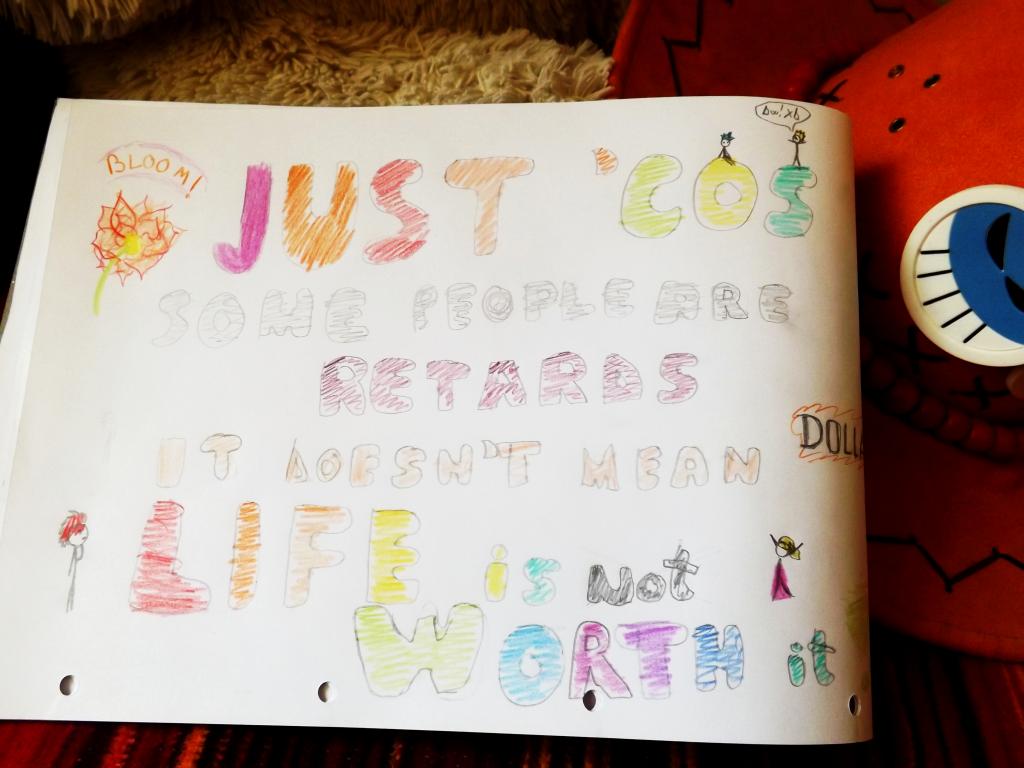 BLOOM!
JUST 'COS
SOME PEOPLE ARE
RETARDS
IT DOESN'T MEAN
LIFE is NOT
WORTH it